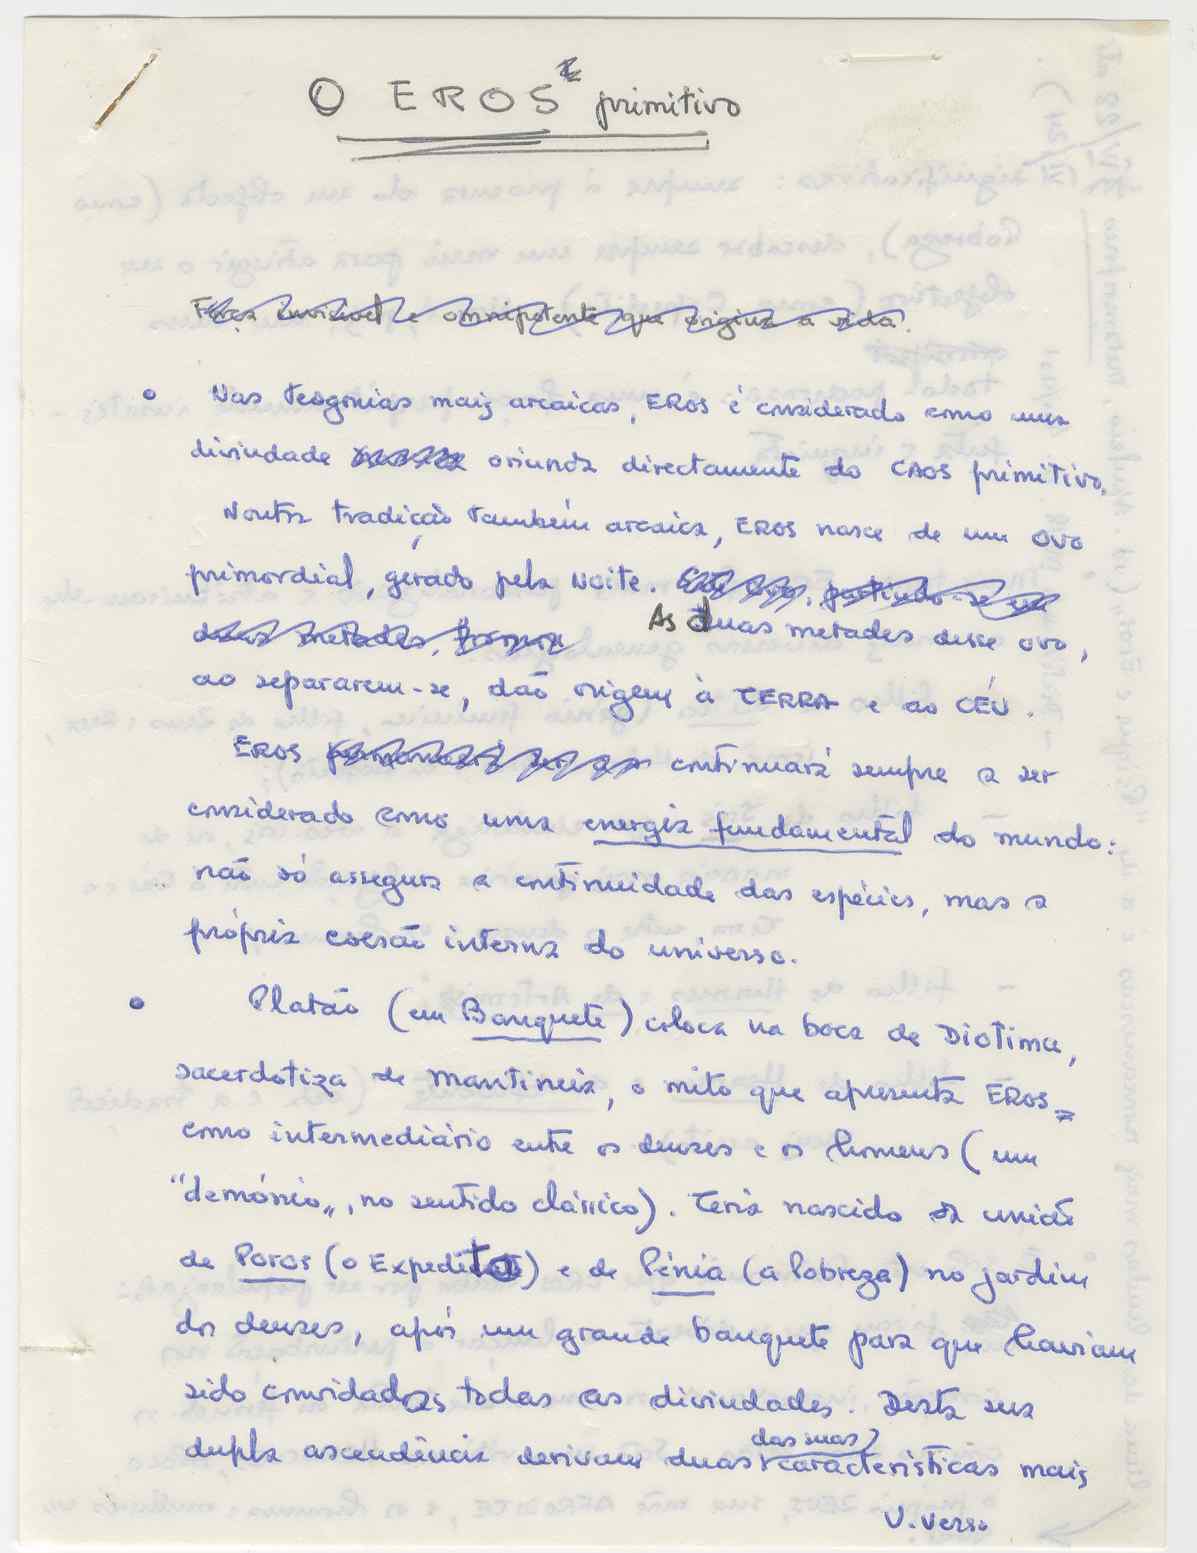 O EROS primitivo
Força invisível e omnipotente que origina a vida.
Nas teogonias mais arcaicas, EROS é considerado como uma
divindade oriunda directamente do CAOS primitivo.
Noutra tradição também arcaica, EROS nasce de um ovo
primordial, gerado pela Noite. Este ovo, partindo-se em
duas metades, forma As duas metades desse ovo,
ao separarem-se, dão origem à TERRA e ao CÉU.
EROS continuará sempre a ser
considerado como uma energia fundamental do mundo:
não só assegura a continuidade das espécies, mas a
própria coesão interna do universo.
Platão (em Banquete) coloca na boca de Diotima,
sacerdotiza de Mantineia, o mito que apresenta EROS
como intermediário entre os deuses e os homens (um
"demónio", no sentido clássico). Teria nascido da união
de Poros (o Expedito) e de Pénia (a Pobreza) no jardim
dos deuses, após um grande banquete para que haviam
sido convidados todas as divindades. Desta sua
dupla ascendência derivam duas das suas características mais
V. verso